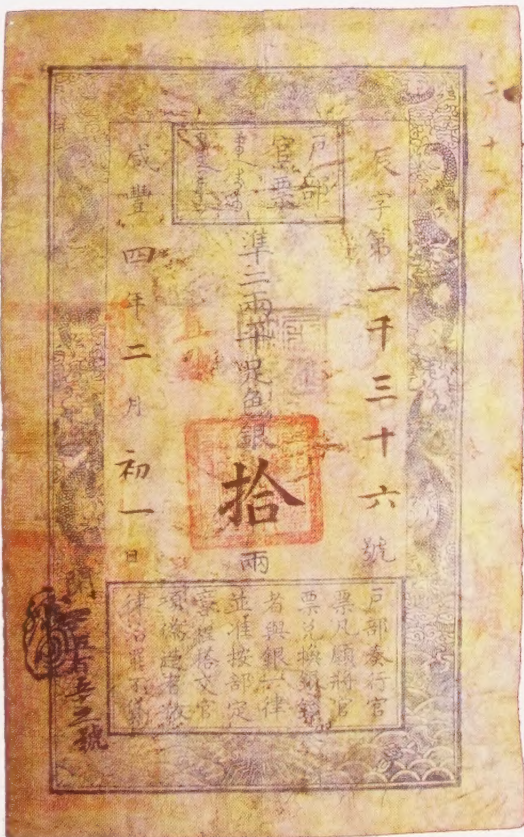 戶部
官票
辰字第一千三十六號
準二兩平足色銀拾兩
咸豐四年二月初一日
戶部奏行官
票凡願將官
票兌換銀錢
者與銀一律
並准按部定
章程搭交官
項偽造者依
律治罪不貸